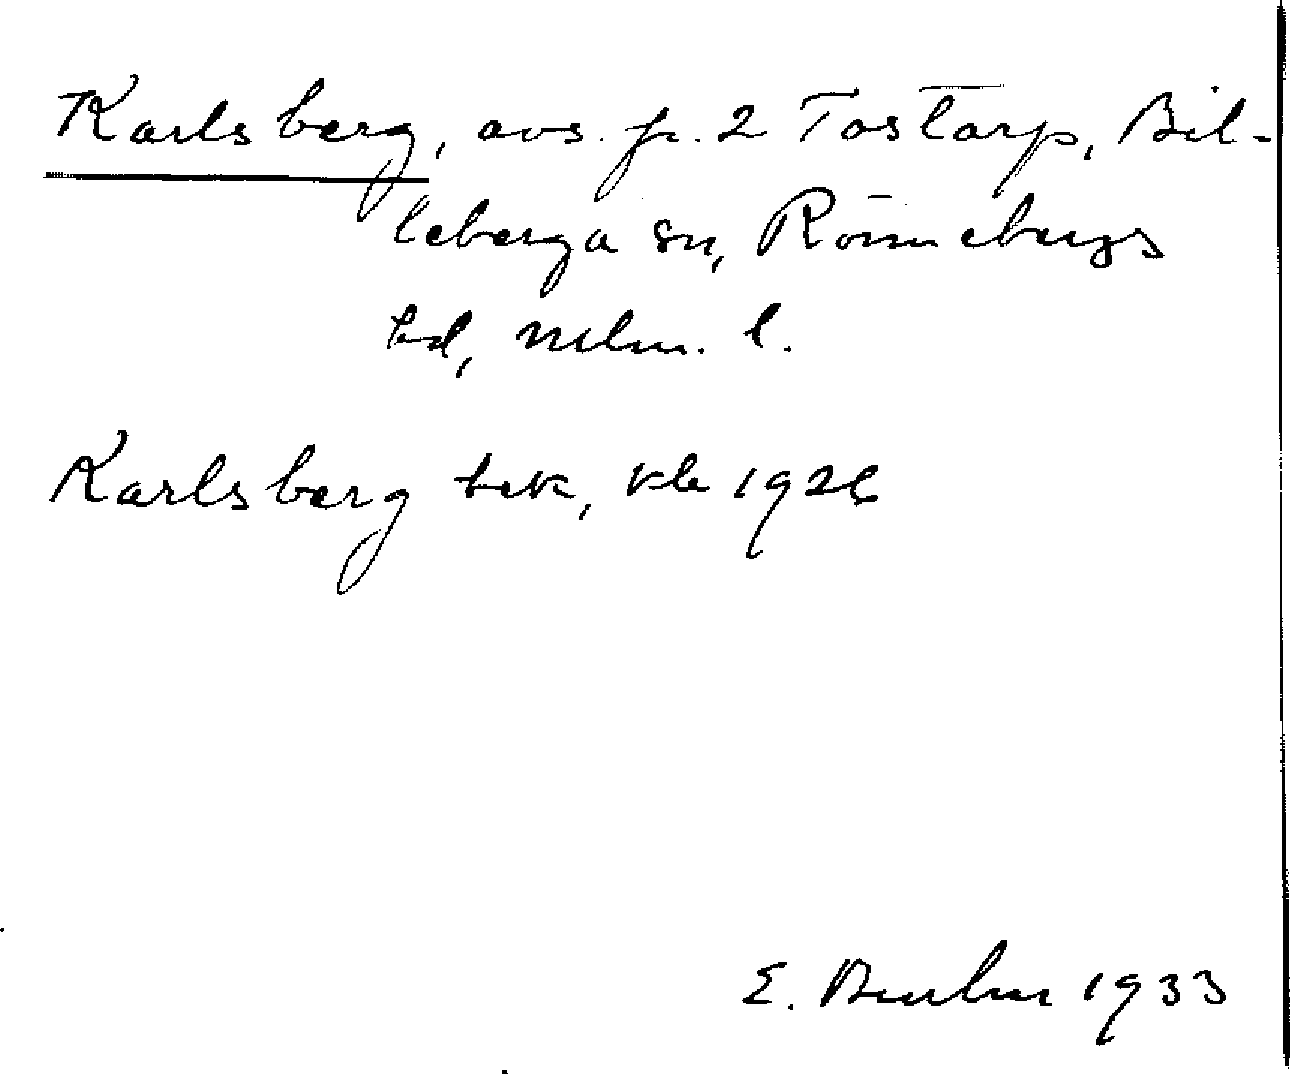 Karlsberg, avs. fr. 2 Tostarp, Bil-
leberga sn, Rönnebergs
hd, Mlm. l.
Karlsberg tek, kb 1926
E. 1933